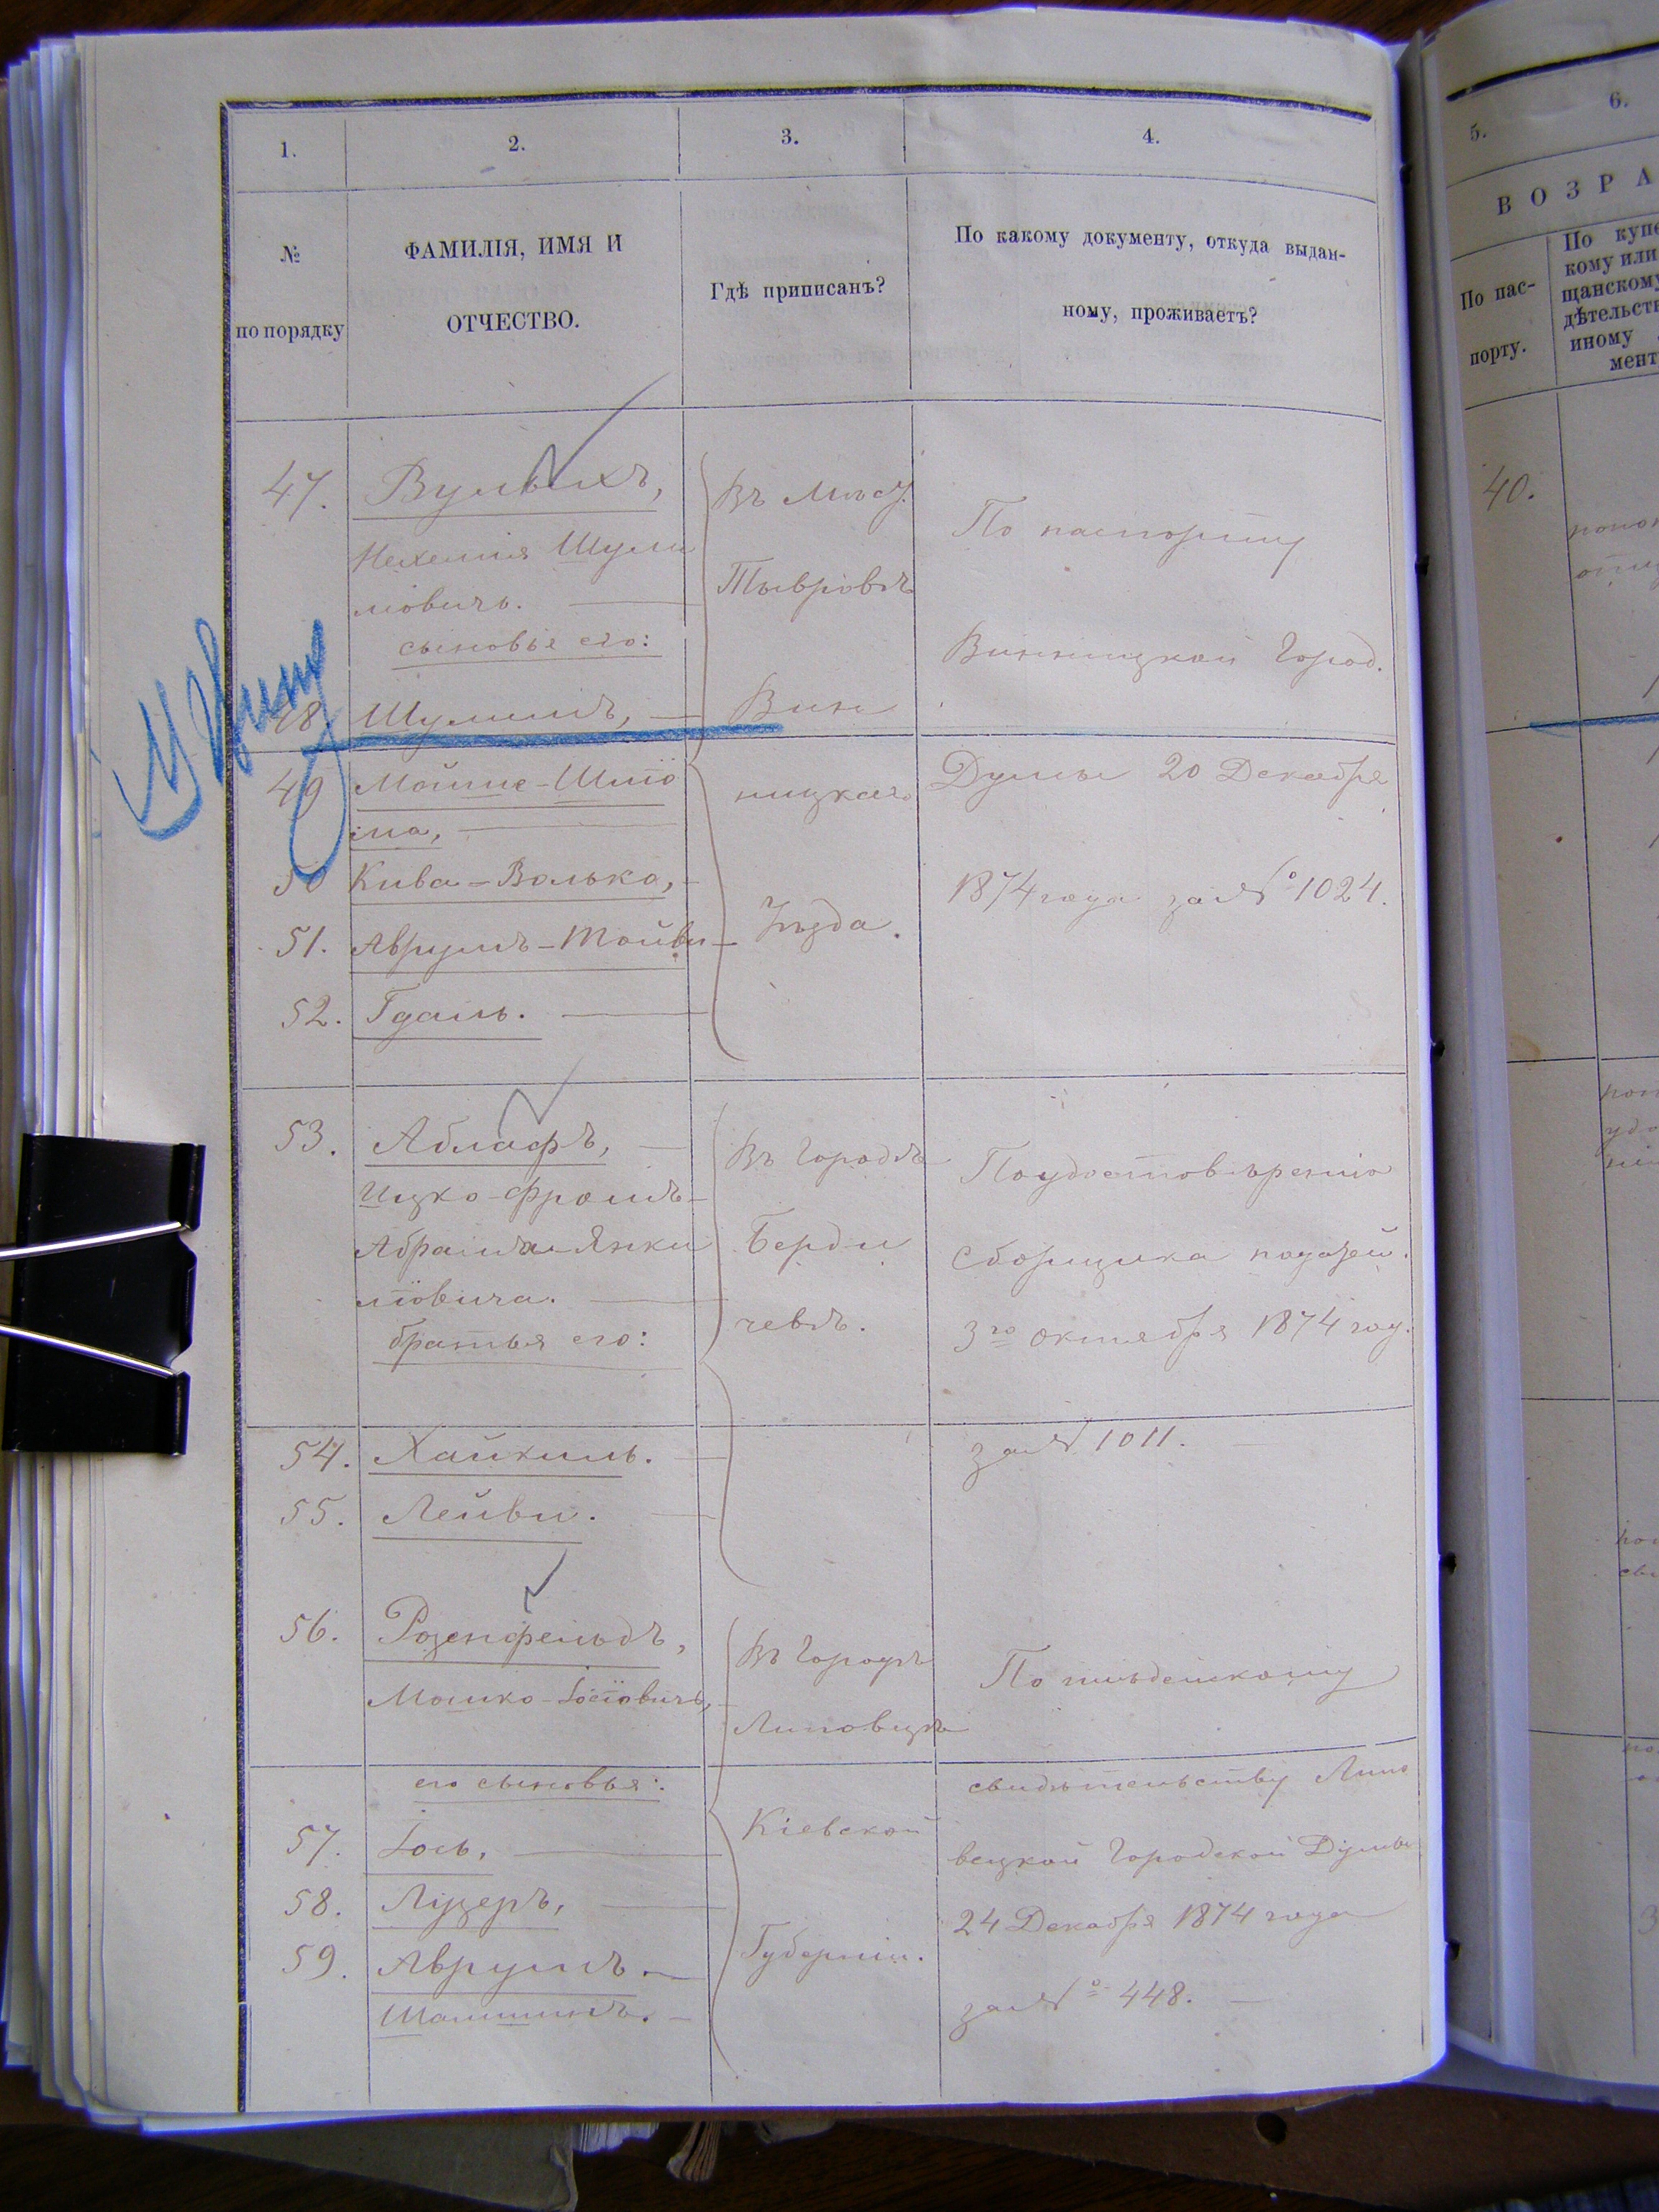 1. 2. 3. 4.
№ по порядку
ФАМИЛІЯ, ИМЯ И
ОТЧЕСТВО.
Гдѣ приписанъ?
По какому документу, откуда выдан-
ному, проживаетъ?
5. 6.
ВОЗРА
По пас-
порту.
По купе
кому или
щанскому
дѣтельств
иному
мент
47. Вульихъ,
Нехемия Шули
мовичъ.
сыновья его:
48 Шулимъ,
49 Мойше-Шлио
ма,
50 Кива-Волько,
51. Аврумъ-Тойви
52. Гдаль.
Въ Мѣст.
Тывровѣ
Вин
ницкаго
Уѣзда.
По паспорту
Винницкой Город.
Думы 20 Декабря
1874 года за № 1024.
40.
53. Аблафъ,
Ицко-Фроимъ-
Абрамъ Янки
ліовича.
братья его:
54. Хаикиль.
55. Лейви.
Въ Городѣ
Берди
чевѣ.
По удостовѣренію
Сборщика податей
3го октября 1874 год.
за № 1011.
56. Розенфельдъ,
Мошко-Іосіовичъ,
его сыновья:
57. Іось,
58. Лузеръ,
59. Аврумъ
Шатшинъ.
Въ Городѣ
Липовцѣ
Кіевской
Губерніи.
По
свидѣтельству Липо
вецкой Городской Думы
24 Декабря 1874 года
за № 448.